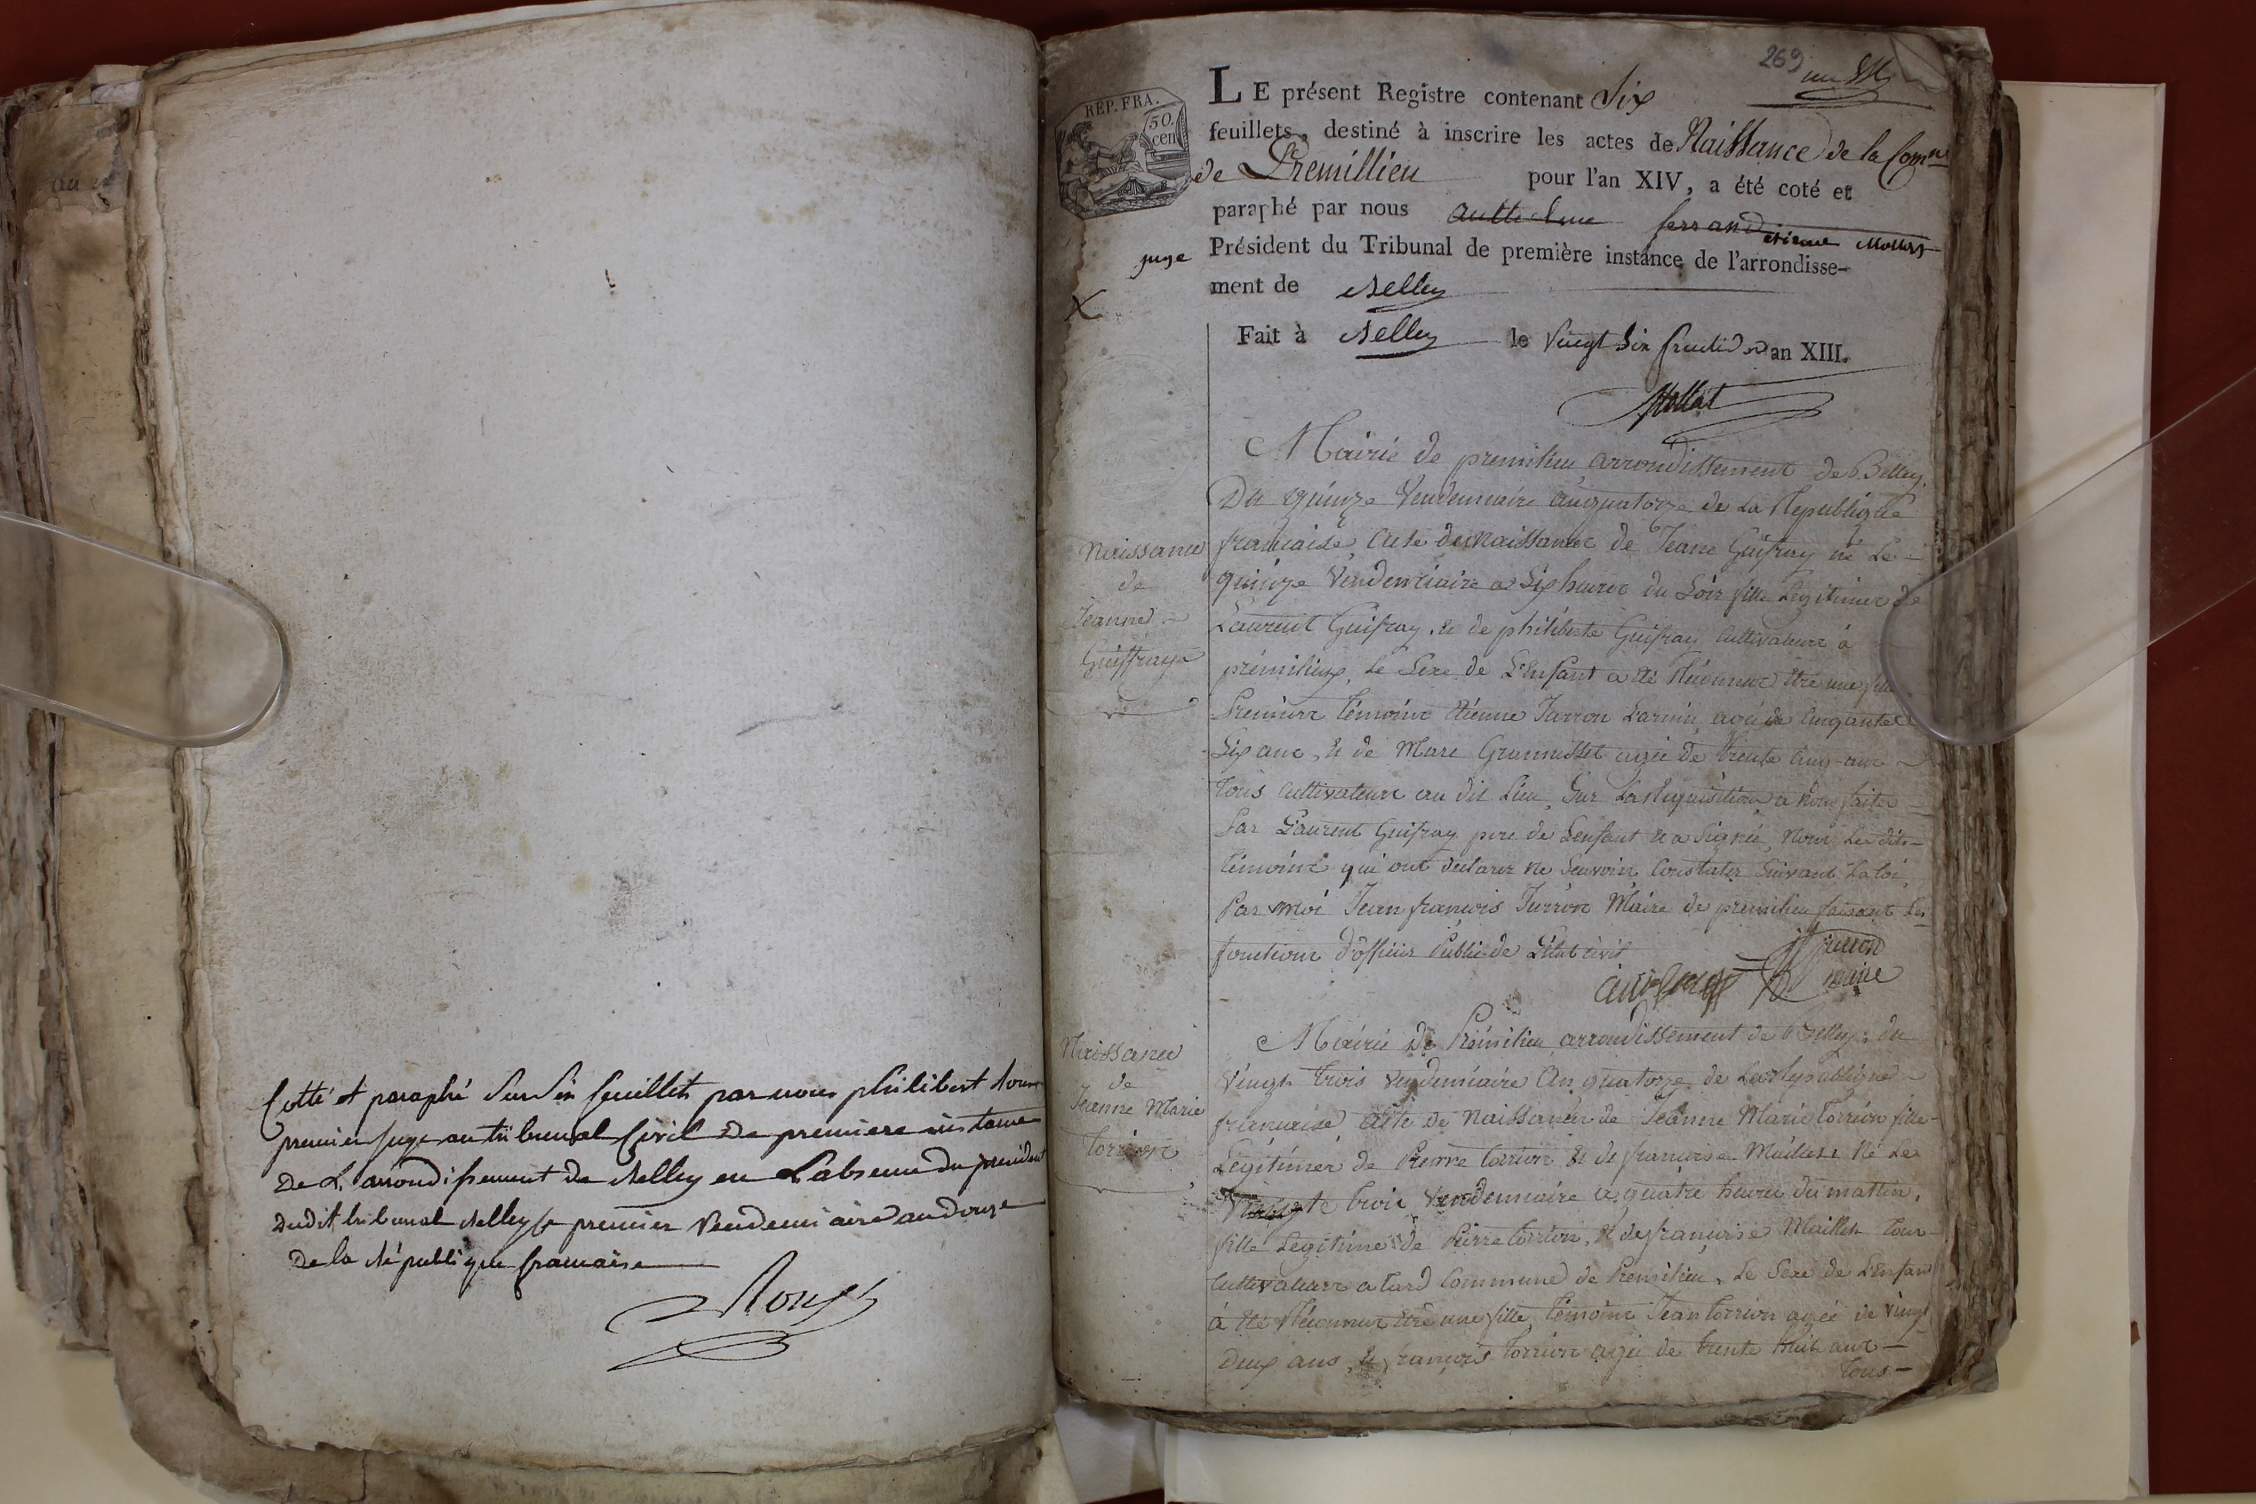 Cotté et paraphé sur six feuillets par nous philibert Roux
premier juge au tribunal Civil de premiere instance
de L'arrondissement de Belley en L'absence du president
dudit tribunal Belley le premier Vendemiaire an douze
de la République francaise
Roux
269
REP. FRA.
50.
cen
LE présent Registre contenant Six
feuillets, destiné à inscrire les actes de Naissance de la Comne
de Premillieu pour l'an XIV, a été coté et
paraphé par nous ferrand etienne Mollet
juge Président du Tribunal de première instance de l'arrondisse-
ment de Belley
X
Fait à Belley le Vingt six fructidor an XIII.
Mollet
Mairie de premilieu arrondissement de Belley.
Du quinze Vendemiaire an quatorze de La Republique
Naissance
de
Jeanne
Guiffray
francaise, Acte de Naissance de Jeane Guifray né Le
quinze Vendemiaire a Six heures du Soir fille Legitimes de
Laurent Guifray, & de philiberte Guifray cultivateurs à
prémilieux, Le Sexe de L'enfant a été Réconnue être une fille
Premiere témoins étienne Jurron Larmin agée de Cinquante
Six ans, & de Marc Grummsset agée de trente Cinq ans
tous Cultivateurs au dit Lieu, Sur La Requisition a Nous faite
Par Laurent Guifray pere de Lenfant & a Signée, Nous Les dits
témoins qui ont declarez ne Scavoir Constater Suivant La Loi,
Par Moi Jean francois Jurron Maire de premilieu faisant Les
fonctions d'officier Public de L'état Civil
Jurron
maire
Naissance
de
Jeanne Marie
Torrion
Mairie De Prémilieu arrondissement de Belley: du
Vingt trois Vendemiaire An quatorze de La Republique
francaise, Acte de Naissance de Jeanne Marie torrion fille
Légitimes de Pierre torrion & de francoise Maillet Né Le
trois Vendemiaire a quatre heures du mattin,
fille Legitime de Pierre torrion, & de francoise Maillet tous
Cultivateurs a tard Commune de Premilieu, Le Sexe de L'enfant
à été Réconnue être une fille, témoins Jean torrion agée de Vingt
Deux ans, & francois torrion agée de trente huit ans
tous